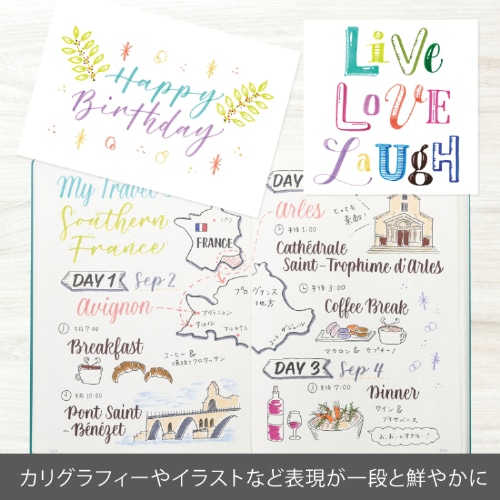 Happy
Birthday
LiVe
LOVE
LaUGH
My Travel
Southern
France
FRANCE
パリ
DAY 1
Sep 2
Avignon
午前 7:00
Breakfast
コーヒー &
午前 10:00
Pont Saint
-Bénézet
プロヴァンス
地方
アヴィニョン
アルル
マルセイユ
DAY
Arles
とっても
素敵!
午後 1:00
Cathédrale
Saint-Trophime d'Arles
午後 3:00
Coffee Break
マカロン & カプチーノ
DAY 3
Sep 4
午後 7:00
Dinner
ワイン &
ブイヤベース
カリグラフィーやイラストなど表現が一段と鮮やかに